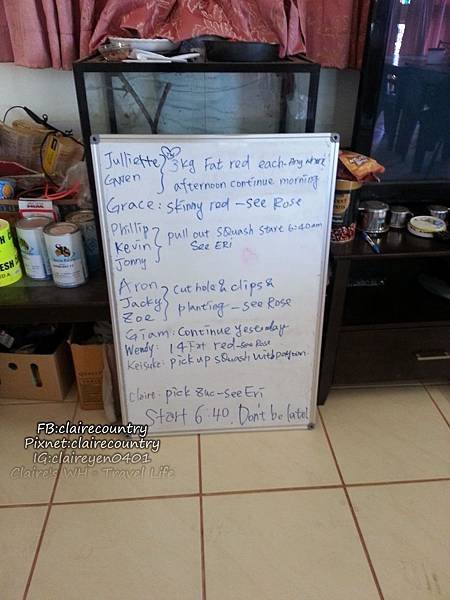 Julliette
Gwen
3kg Fat red each-Any where
afternoon continue morning
Grace: skinny red - see Rose
Phillip
Kevin
Jonny
pull out squash stare 6:40am
See ERi
Aron
Jacky
Zoe
cut hole & clips &
planting - see Rose
Giam: Continue yesterday
Wendy: 14 Fat red - see Rose
Keisuke: pick up squash with
Claire: pick zuc - see Eri
Start 6:40. Don't be late!
FB:clairecountry
Pixnet:clairecountry
IG:claireyen0401
Claire's WH - Travel Life